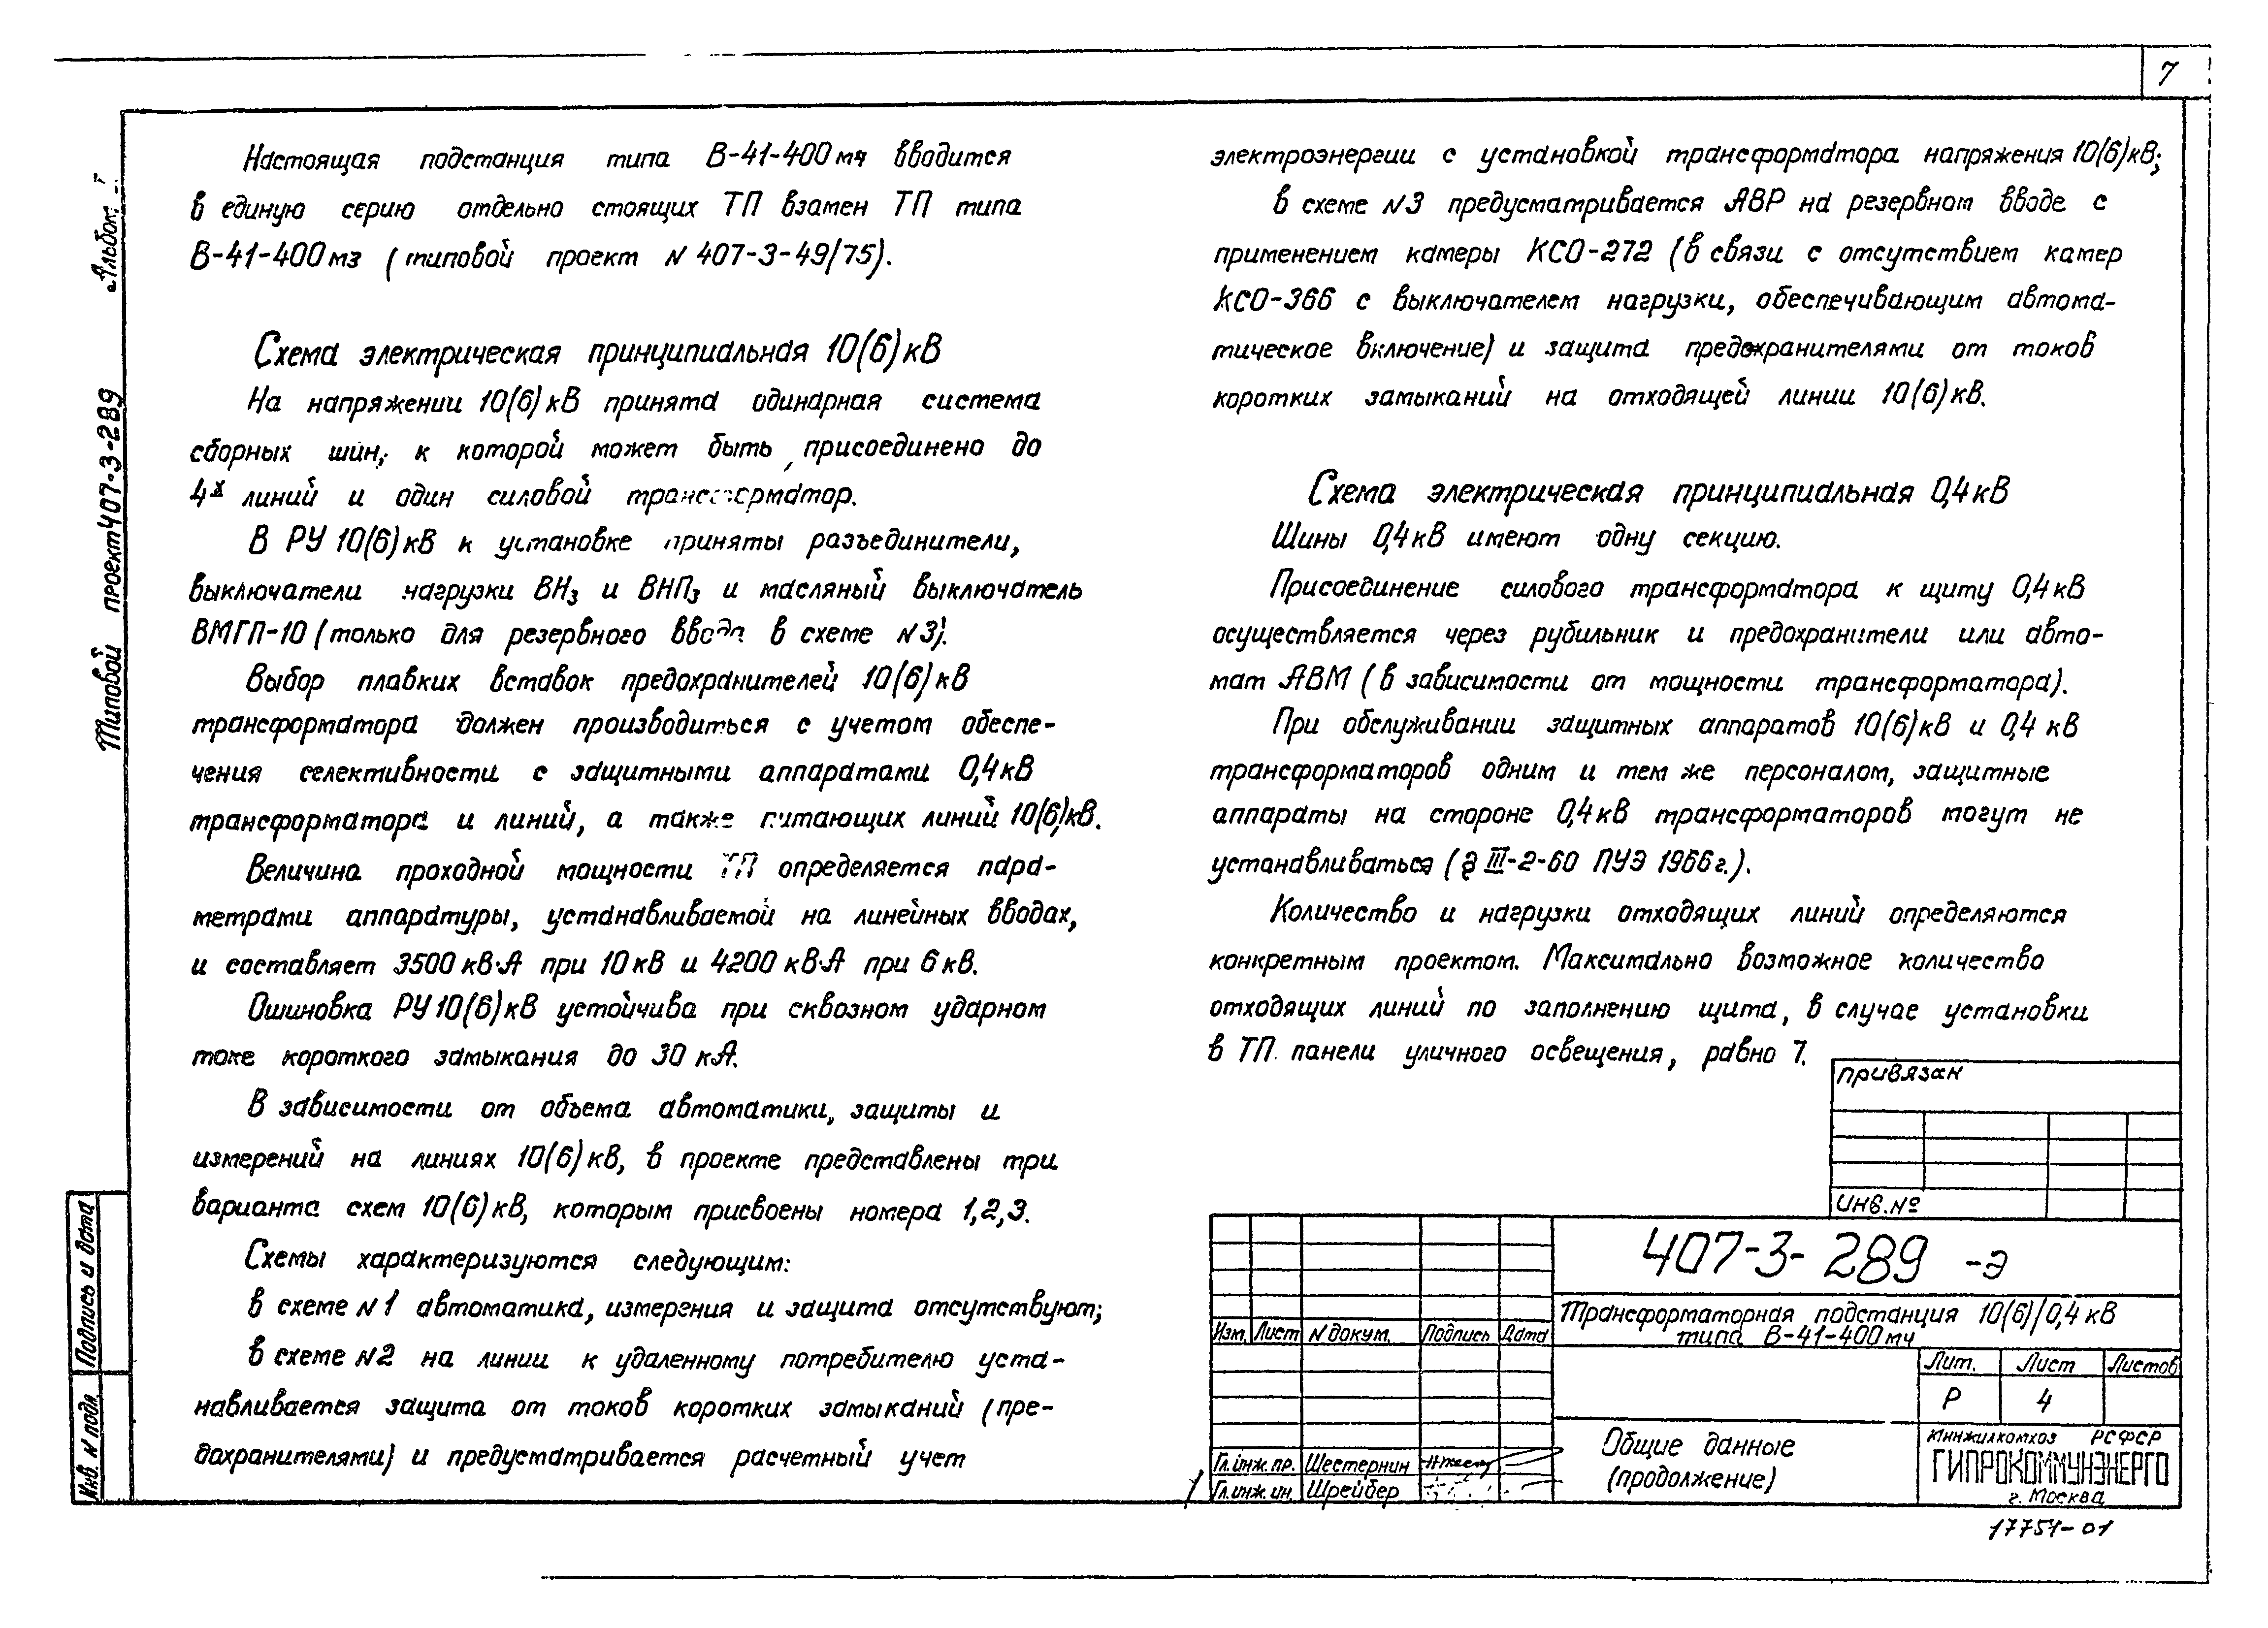 7
Альбом I
Типовой проект 407-3-289
Настоящая подстанция типа В-41-400м4 вводится
в единую серию отдельно стоящих ТП взамен ТП типа
В-41-400м3 (типовой проект N 407-3-49/75).
Схема электрическая принципиальная 10(6)кВ
На напряжении 10(6)кВ принята одинарная система
сборных шин, к которой может быть присоединено до
4х линий и один силовой трансформатор.
В РУ 10(6)кВ к установке приняты разъединители,
выключатели нагрузки ВНз и ВНПз и масляный выключатель
ВМГП-10 (только для резервного ввода в схеме N3).
Выбор плавких вставок предохранителей 10(6)кВ
трансформатора должен производиться с учетом обеспе-
чения селективности с защитными аппаратами 0,4кВ
трансформатора и линий, а также питающих линий 10(6)кВ.
Величина проходной мощности ТП определяется пара-
метрами аппаратуры, устанавливаемой на линейных вводах,
и составляет 3500 кВ·А при 10кВ и 4200 кВ·А при 6кВ.
Ошиновка РУ10(6)кВ устойчива при сквозном ударном
токе короткого замыкания до 30 кА.
В зависимости от объема автоматики, защиты и
измерений на линиях 10(6)кВ, в проекте представлены три
варианта схем 10(6)кВ, которым присвоены номера 1,2,3.
Схемы характеризуются следующим:
в схеме N1 автоматика, измерения и защита отсутствуют;
в схеме N2 на линии к удаленному потребителю уста-
навливается защита от токов коротких замыканий (пре-
дохранителями) и предусматривается расчетный учет
электроэнергии с установкой трансформатора напряжения 10(6)кВ;
в схеме N3 предусматривается АВР на резервном вводе с
применением камеры КСО-272 (в связи с отсутствием камер
КСО-366 с выключателем нагрузки, обеспечивающим автома-
тическое включение) и защита предохранителями от токов
коротких замыканий на отходящей линии 10(6)кВ.
Схема электрическая принципиальная 0,4кВ
Шины 0,4кВ имеют одну секцию.
Присоединение силового трансформатора к щиту 0,4кВ
осуществляется через рубильник и предохранители или авто-
мат АВМ (в зависимости от мощности трансформатора).
При обслуживании защитных аппаратов 10(6)кВ и 0,4 кВ
трансформаторов одним и тем же персоналом, защитные
аппараты на стороне 0,4кВ трансформаторов могут не
устанавливаться (§ III-2-60 ПУЭ 1966г.).
Количество и нагрузки отходящих линий определяются
конкретным проектом. Максимально возможное количество
отходящих линий по заполнению щита, в случае установки
в ТП панели уличного освещения, равно 7.
привязан
инв.№
407-3-289 -Э
Трансформаторная подстанция 10(6)/0,4 кВ
типа В-41-400м4
Изм. Лист N докум. Подпись Дата
Лит. Лист Листов
Р 4
Общие данные
(продолжение)
Минжилкомхоз РСФСР
ГИПРОКОММУНЭНЕРГО
г. Москва
Гл.инж.пр. Шестернин
Гл.инж.ин. Шрейбер
Подпись и дата
Инв. N подл.
17751-01